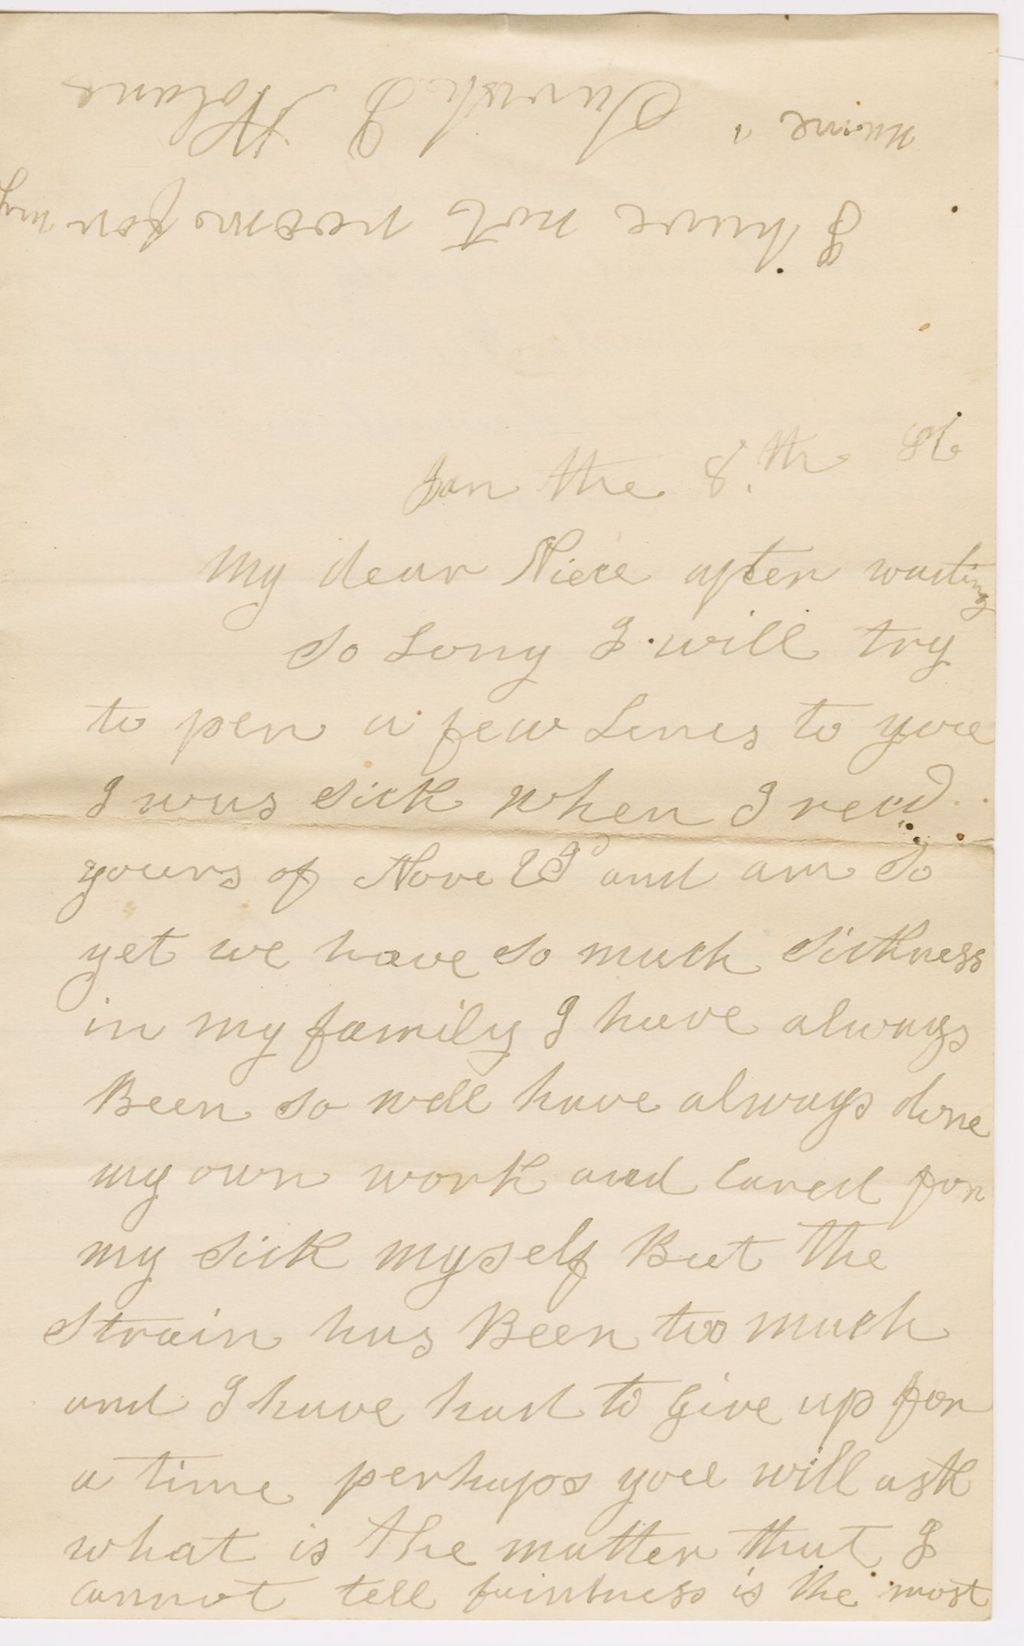 I have not room for my
name "Sarah J Nolane
Jan the 8.th 86
My dear Niece after waiting
So Long I will try
to pen a few Lines to you
I was Sick when I recd
yours of Nove and am So
yet we have so much Sickness
in my family I have always
Been so well have always done
my own work and Cared for
my Sick myself But the
Strain has Been too much
and I have had to Give up for
a time perhaps you will ask
what is the matter that I
cannot tell faintness is the most